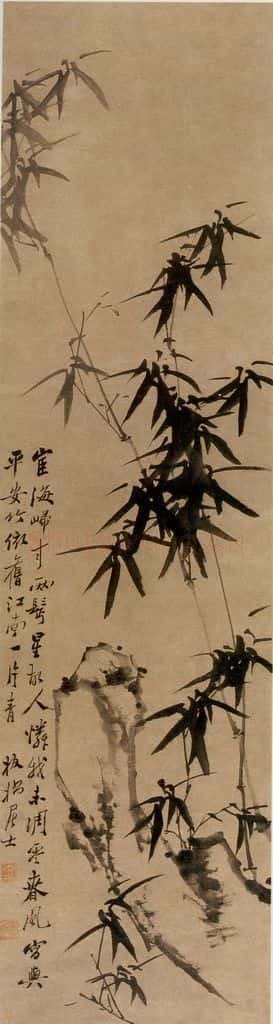 宦海歸來兩鬢星故人憐我未凋零春風寫與
平安竹依舊江南一片青 板橋居士